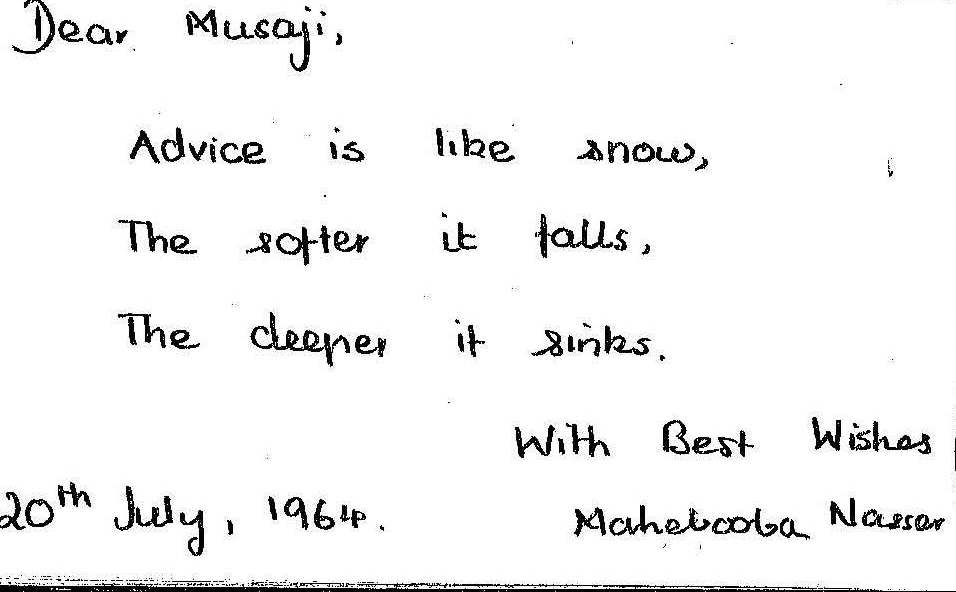 Dear Musaji,
Advice is like snow,
The softer it falls,
The deeper it sinks.
With Best Wishes
20th July, 1964. Mahebooba Nasser